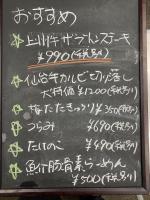 おすすめ
¥990(税別)
仙台牛カルビ切り落し
大特価 ¥1200(税別)
梅たたききゅうり ¥350(税別)
つらみ ¥690(税別)
たけのこ ¥690(税別)
魚介豚骨らーめん
¥500(税別)